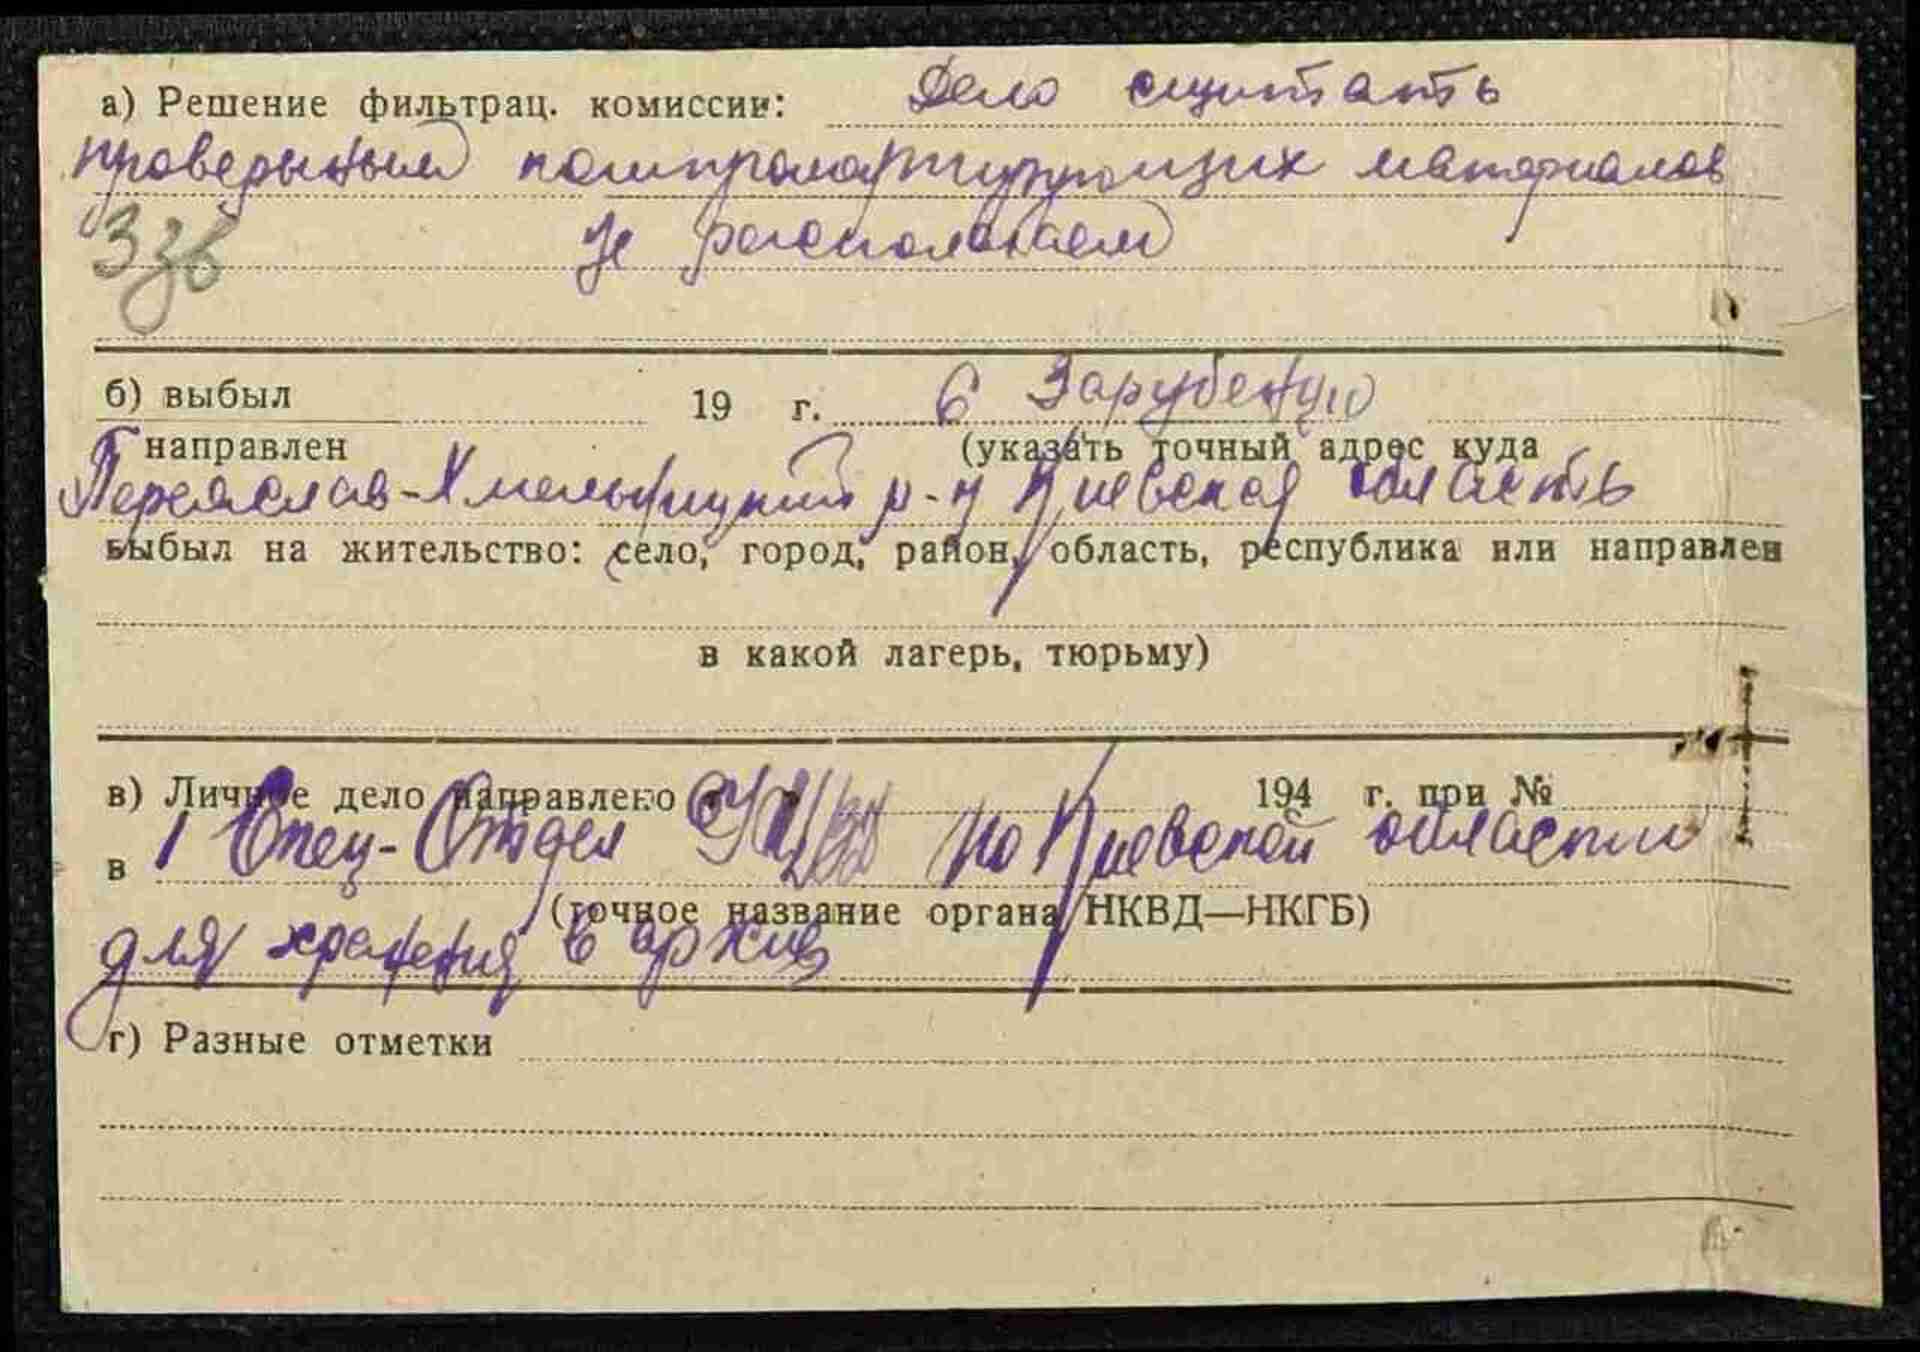 а) Решение фильтрац. комиссии: Дело сщитать
проверыным компроматирующих материалов
не располагаем
б) выбыл 19 г. в Зарубенцю
направлен (указать точный адрес куда
Переяслав-Хмельницкий р-н Киевская область
выбыл на жительство: село, город, район, область, республика или направлен
в какой лагерь, тюрьму)
в) Личное дело направлено 194 г. при №
в 1 Спец-Отдел УНКВД по Киевской области
(точное название органа НКВД—НКГБ)
для хранения в архив
г) Разные отметки